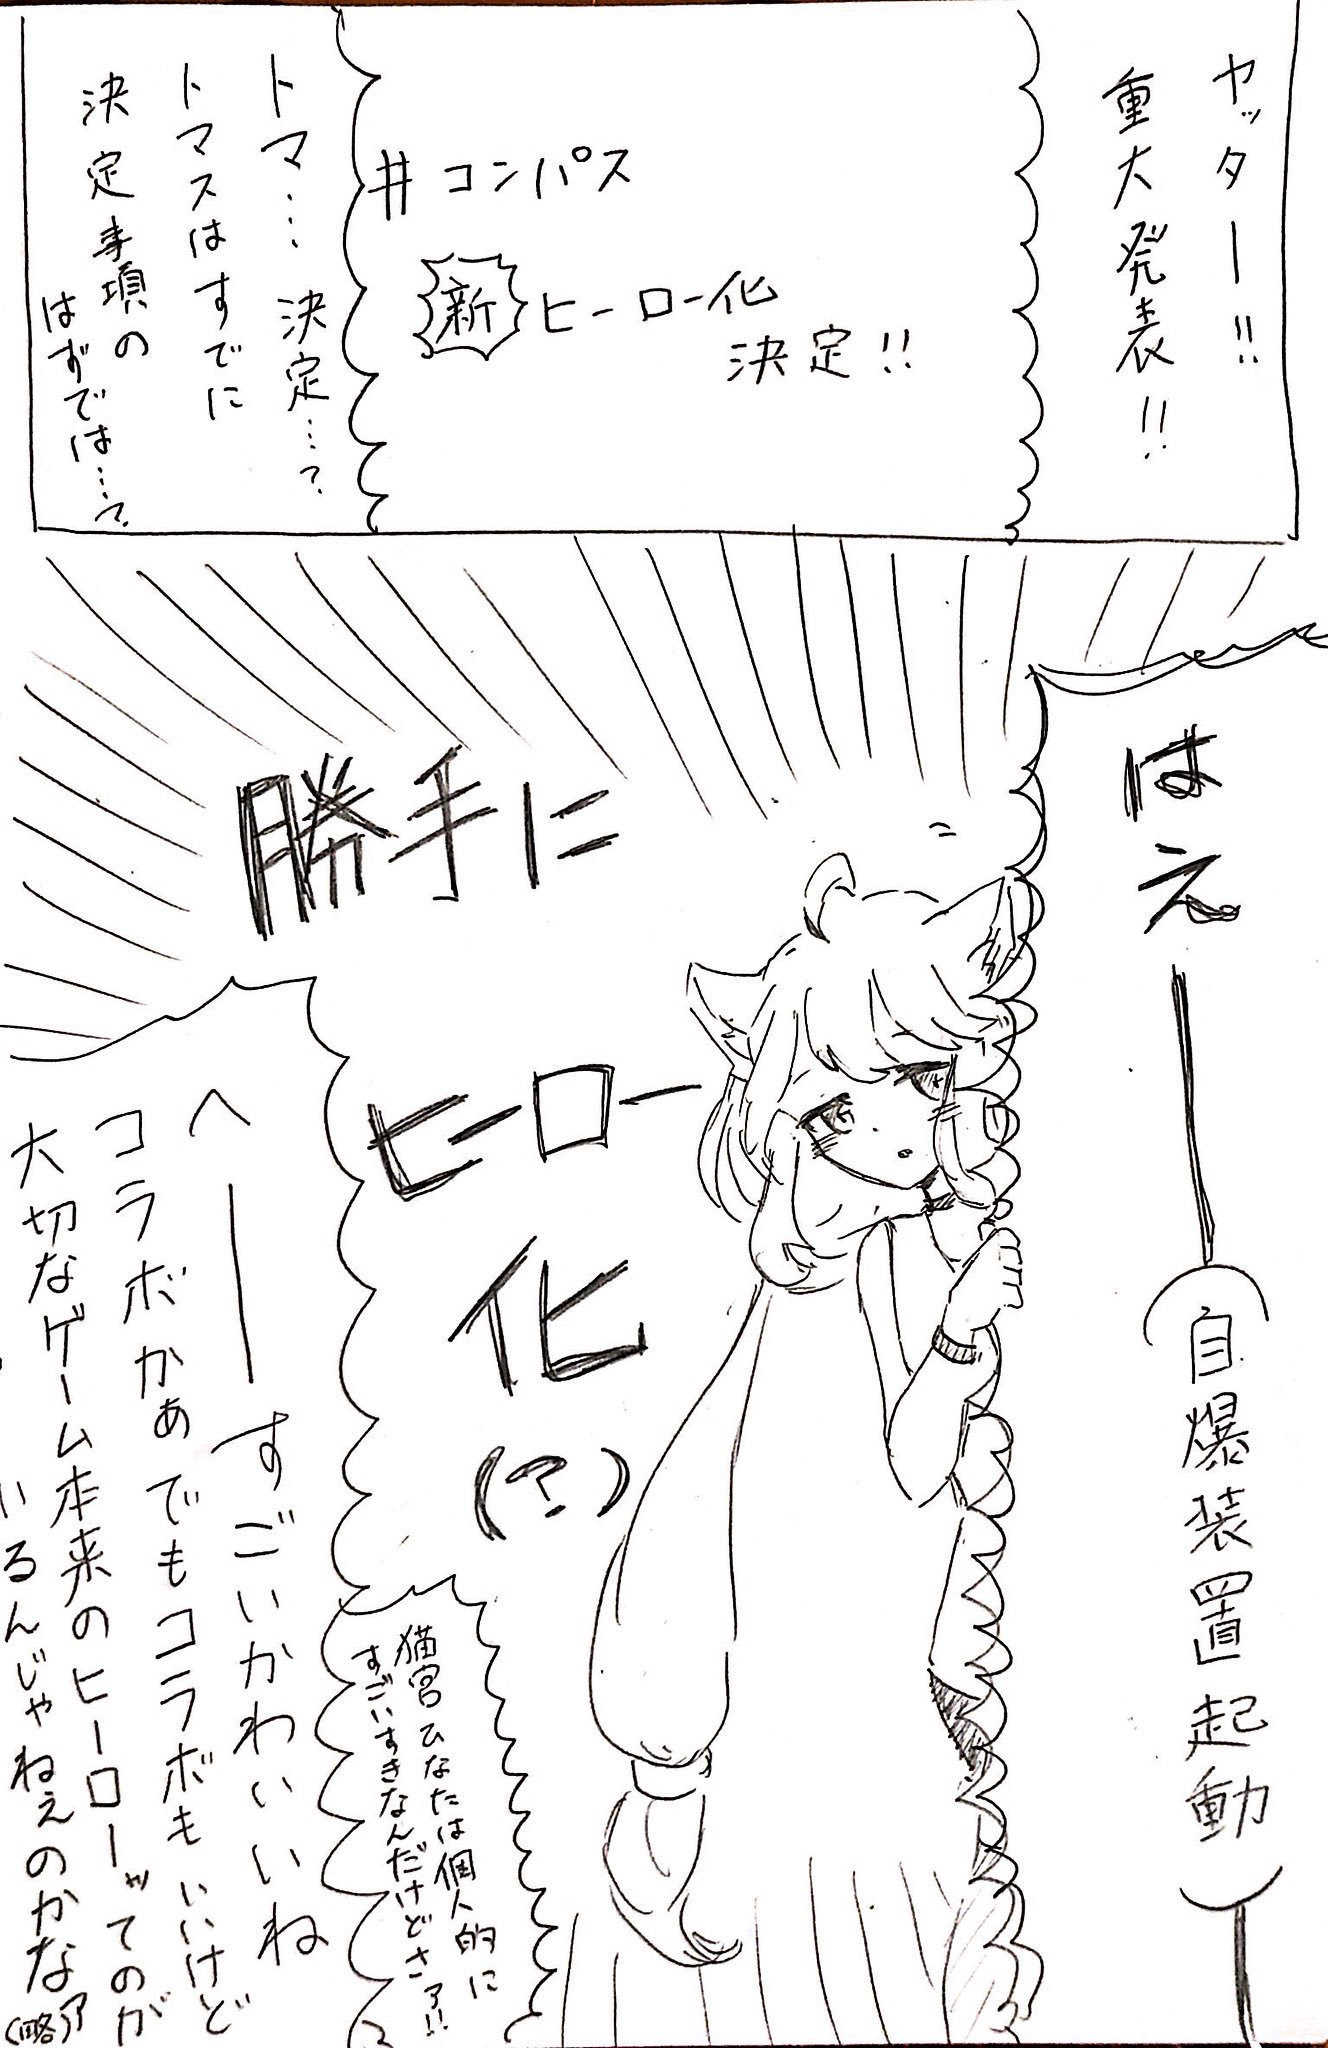 ヤッター!!
重大発表!!
#コンパス
新ヒーロー化
決定!!
トマ…決定…?
トマスはすでに
決定事項の
はずでは…?
はえ
―(自爆装置起動)―
勝手に
ヒーロー
化
(?)
猫宮ひなたは個人的に
すごいすきなんだけどさァ!!
へーすごいかわいいね
コラボかぁでもコラボもいいけど
大切なゲーム本来のヒーローッてのが
いるんじゃねぇのかなァ
(略)